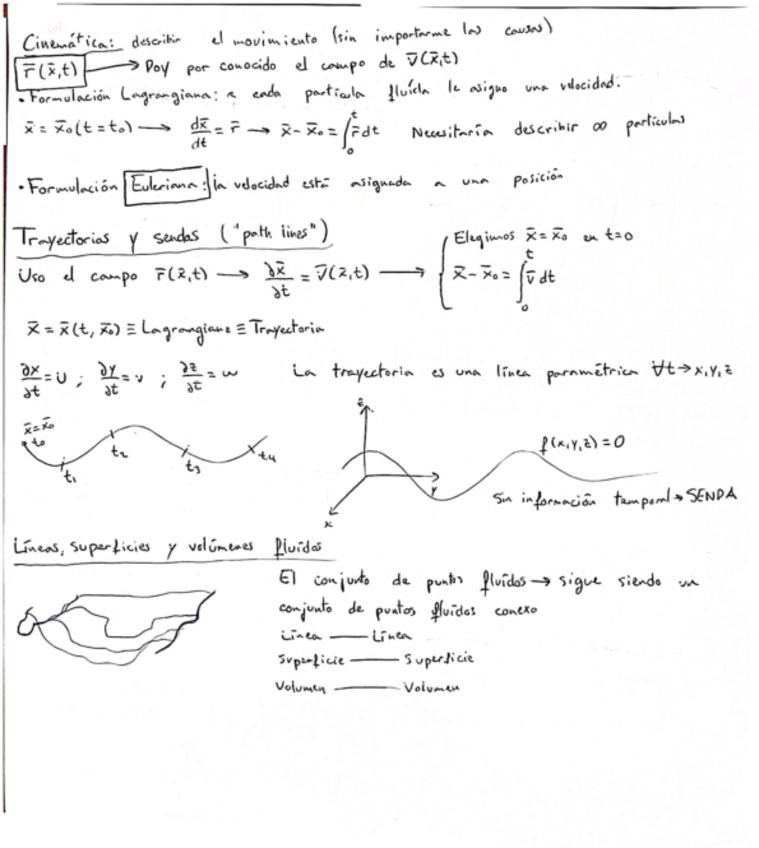 Cinemática: describir el movimiento (sin importarme las causas)
r̅(x̅,t) → Doy por conocido el campo de v̅(x̅,t)
• Formulación Lagrangiana: a cada partícula fluida le asigno una velocidad.
x̅ = x̅₀(t=t₀) → dx̅/dt = r̅ → x̅ - x̅₀ = ∫₀ᵗ r̅ dt Necesitaría describir ∞ partículas
• Formulación Euleriana: la velocidad está asignada a una posición
Trayectorias y sendas ("path lines")
Uso el campo r̅(x̅,t) → ∂x̅/∂t = v̅(x̅,t) → { Elegimos x̅ = x̅₀ en t=0
x̅ - x̅₀ = ∫₀ᵗ v̅ dt
x̅ = x̅(t, x̅₀) ≡ Lagrangiana ≡ Trayectoria
∂x/∂t = u ; ∂y/∂t = v ; ∂z/∂t = w La trayectoria es una línea paramétrica ∀t → x,y,z
x̅ = x̅₀
t₀ t₁ t₂ t₃ t₄
z
y
x
f(x,y,z) = 0
Sin información temporal → SENDA
Líneas, superficies y volúmenes fluidos
El conjunto de puntos fluidos → sigue siendo un
conjunto de puntos fluidos conexo
Línea — Línea
Superficie — Superficie
Volumen — Volumen